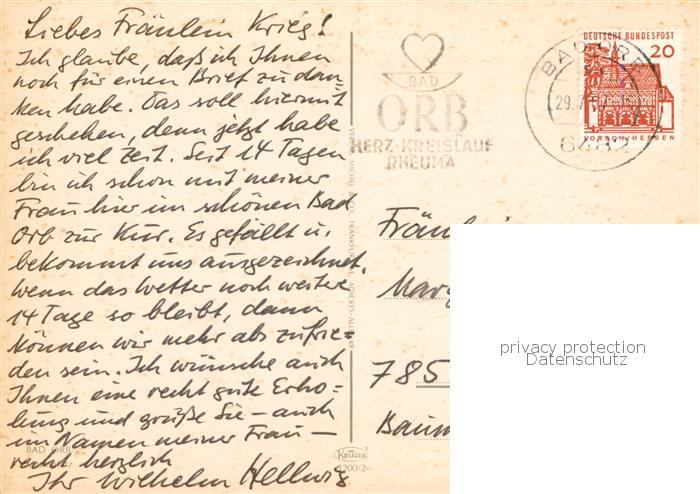 Liebes Fräulein Krieg!
Ich glaube, daß ich Ihnen
noch für einen Brief zu dan-
ken habe. Das soll hiermit
geschehen, denn jetzt habe
ich viel Zeit. Seit 14 Tagen
bin ich schon mit meiner
Frau hier im schönen Bad
Orb zur Kur. Es gefällt u.
bekommt uns ausgezeichnet.
Wenn das Wetter noch weitere
14 Tage so bleibt, dann
können wir mehr als zufrie-
den sein. Ich wünsche auch
Ihnen eine recht gute Erho-
lung und grüße Sie – auch
im Namen meiner Frau –
recht herzlich
Ihr Wilhelm Hellwig
BAD ORB
BAD
ORB
HERZ-KREISLAUF
RHEUMA
BAD ORB
29.7.
6482
DEUTSCHE BUNDESPOST
20
LORSCH/HESSEN
Fräulein
785
KRÜGER
privacy protection
Datenschutz